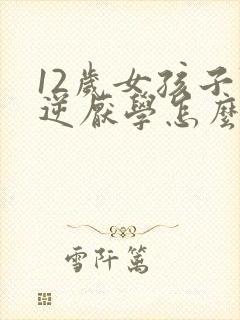 12歲女孩子
逆厭學怎麼
雪阡篱